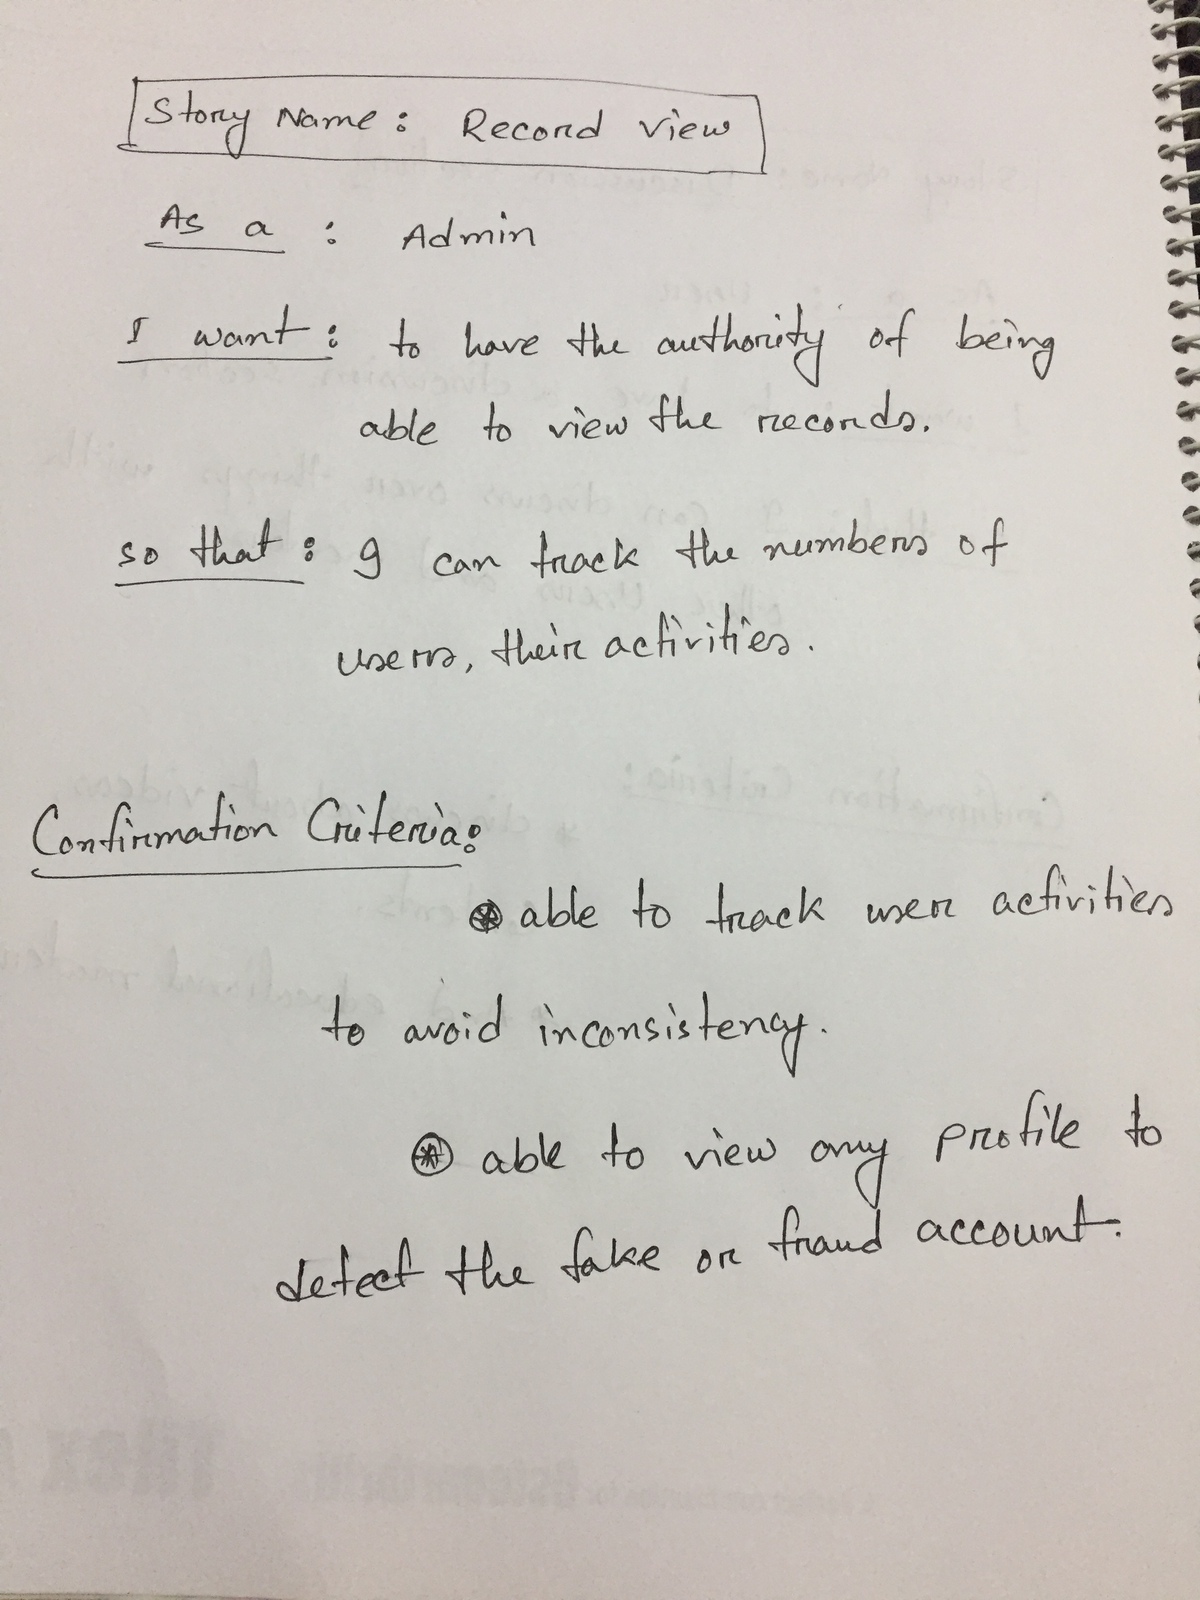 Story Name: Record view
As a : Admin
I want: to have the authority of being
able to view the records.
so that: I can track the numbers of
users, their activities.
Confirmation Criteria:
able to track user activities
to avoid inconsistency.
able to view any profile to
detect the fake or fraud account.